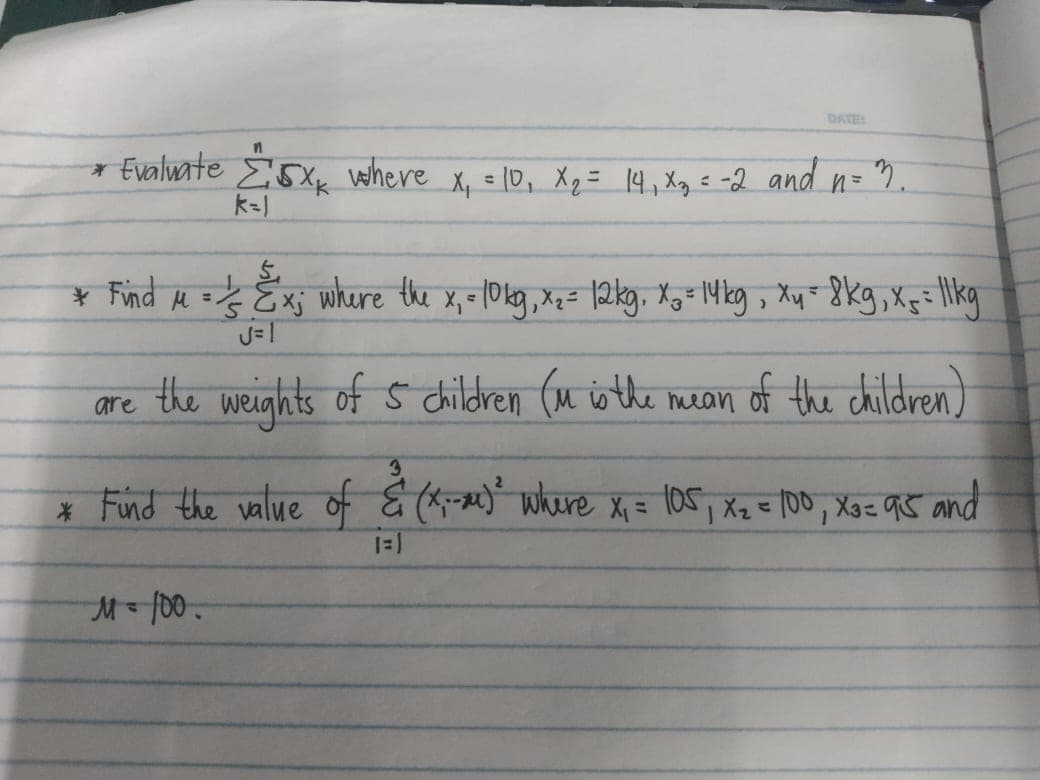 DATE:
* Evaluate Σ_{k=1}^{n} 5x_k where x₁ = 10, x₂ = 14, x₃ = -2 and n = 3.
* Find μ = 1/5 Σ_{j=1}^{5} xj where the x₁ = 10kg, x₂ = 12kg, x₃ = 14kg, x₄ = 8kg, x₅ = 11kg
are the weights of 5 children (μ is the mean of the children)
* Find the value of Σ_{i=1}^{3} (xᵢ-μ)² where x₁ = 105, x₂ = 100, x₃ = 95 and
μ = 100.